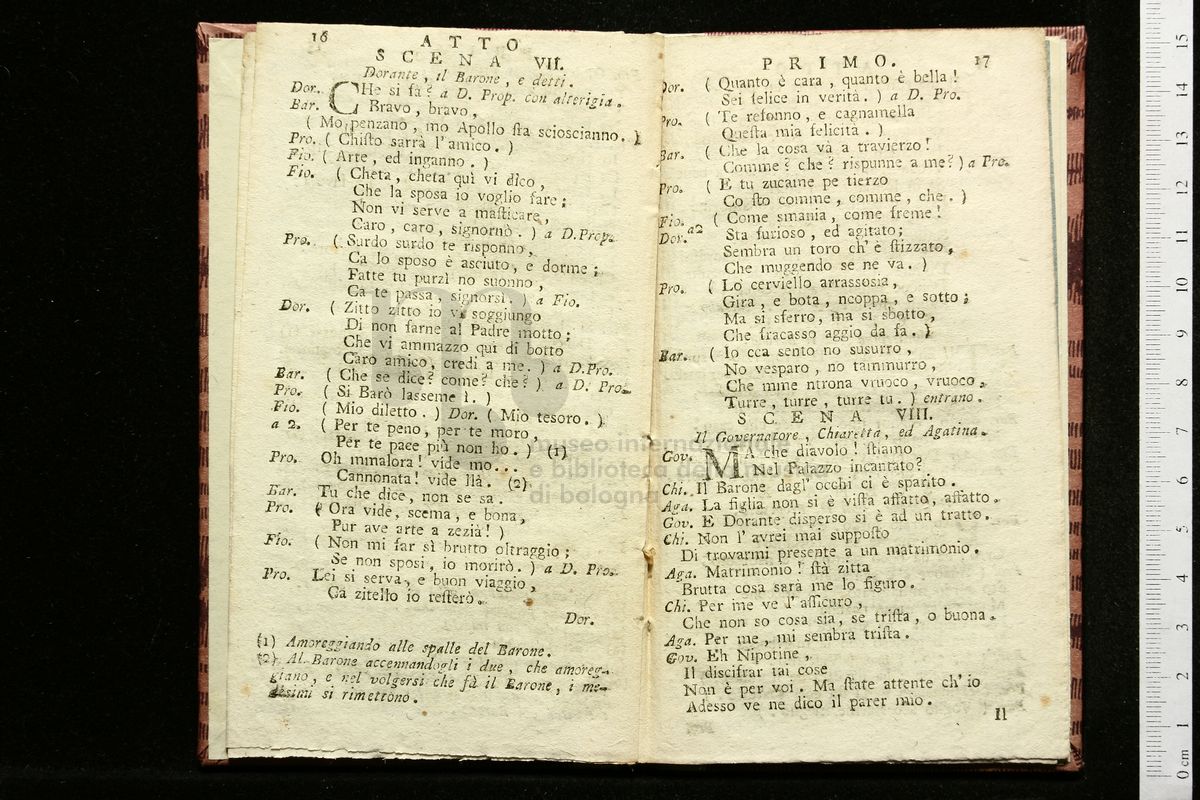 16
ATTO
SCENA VII.
Dorante, il Barone, e detti.
Dor. CHe si fa? a D. Prop. con alterigia.
Bar. Bravo, bravo,
( Mo penzano, mo Apollo sta scioscianno. )
Pro. ( Chisto sarrà l'amico. )
Fio. ( Arte, ed inganno. )
Fio. ( Cheta, cheta quì vi dico,
Che la sposa io voglio fare;
Non vi serve a masticare,
Caro, caro, signornò. ) a D.Prop.
Pro. ( Surdo surdo te risponno,
Ca lo sposo è asciuto, e dorme;
Fatte tu purzì no suonno,
Ca te passa, signorsì. ) a Fio.
Dor. ( Zitto zitto io vi soggiungo
Di non farne al Padre motto;
Che vi ammazzo quì di botto
Caro amico, credi a me. ) a D.Pro.
Bar. ( Che se dice? come? che? ) a D. Pro.
Pro. ( Si Barò lasseme ì. )
Fio. ( Mio diletto. ) Dor. ( Mio tesoro. )
a 2. ( Per te peno, per te moro,
Per te pace più non ho. ) (1)
Pro. Oh mmalora! vide mo...
Cannonata! vide llà. (2)
Bar. Tu che dice, non se sa.
Pro. ( Ora vide, scema, e bona,
Pur ave arte a zezià! )
Fio. ( Non mi far sì brutto oltraggio;
Se non sposi, io morirò. ) a D. Pro.
Pro. Lei si serva, e buon viaggio,
Ca zitello io resterò.
Dor.
(1) Amoreggiando alle spalle del Barone.
(2) Al Barone accennandogli i due, che amoreg-
giano, e nel volgersi che fà il Barone, i me-
desimi si rimettono.
PRIMO. 17
Dor. ( Quanto è cara, quanto è bella!
Sei felice in verità. ) a D. Pro.
Pro. ( Te resonno, e cagnamella
Questa mia felicità. )
Bar. ( Che la cosa và a travierzo!
Comme? che? rispunne a me? ) a Pro.
Pro. ( E tu zucame pe tierzo
Co sto comme, comme, che. )
Fio. ( Come smania, come freme!
Dor. a2 Sta furioso, ed agitato;
Sembra un toro ch'è stizzato,
Che muggendo se ne va. )
Pro. ( Lo cerviello arrassosia,
Gira, e bota, ncoppa, e sotto;
Ma si sferro, ma si sbotto,
Che fracasso aggio da fa. )
Bar. ( Io cca sento no susurro,
No vesparo, no tammurro,
Che mme ntrona vruoco, vruoco,
Turre, turre, turre tu. ) entrano.
SCENA VIII.
Il Governatore, Chiaretta, ed Agatina.
Gov. MA che diavolo! stiamo
Nel Palazzo incantato?
Chi. Il Barone dagl'occhi ci è sparito.
Aga. La figlia non si è vista affatto, affatto.
Gov. E Dorante disperso si è ad un tratto.
Chi. Non l'avrei mai supposto
Di trovarmi presente a un matrimonio.
Aga. Matrimonio! stà zitta
Brutta cosa sarà me lo figuro.
Chi. Per me ve l'assicuro,
Che non so cosa sia, se trista, o buona.
Aga. Per me, mi sembra trista.
Gov. Eh Nipotine,
Il discifrar tai cose
Non è per voi. Ma state attente ch'io
Adesso ve ne dico il parer mio.
Il
museo internazionale
e biblioteca della musica
di bologna
0 cm 1 2 3 4 5 6 7 8 9 10 11 12 13 14 15